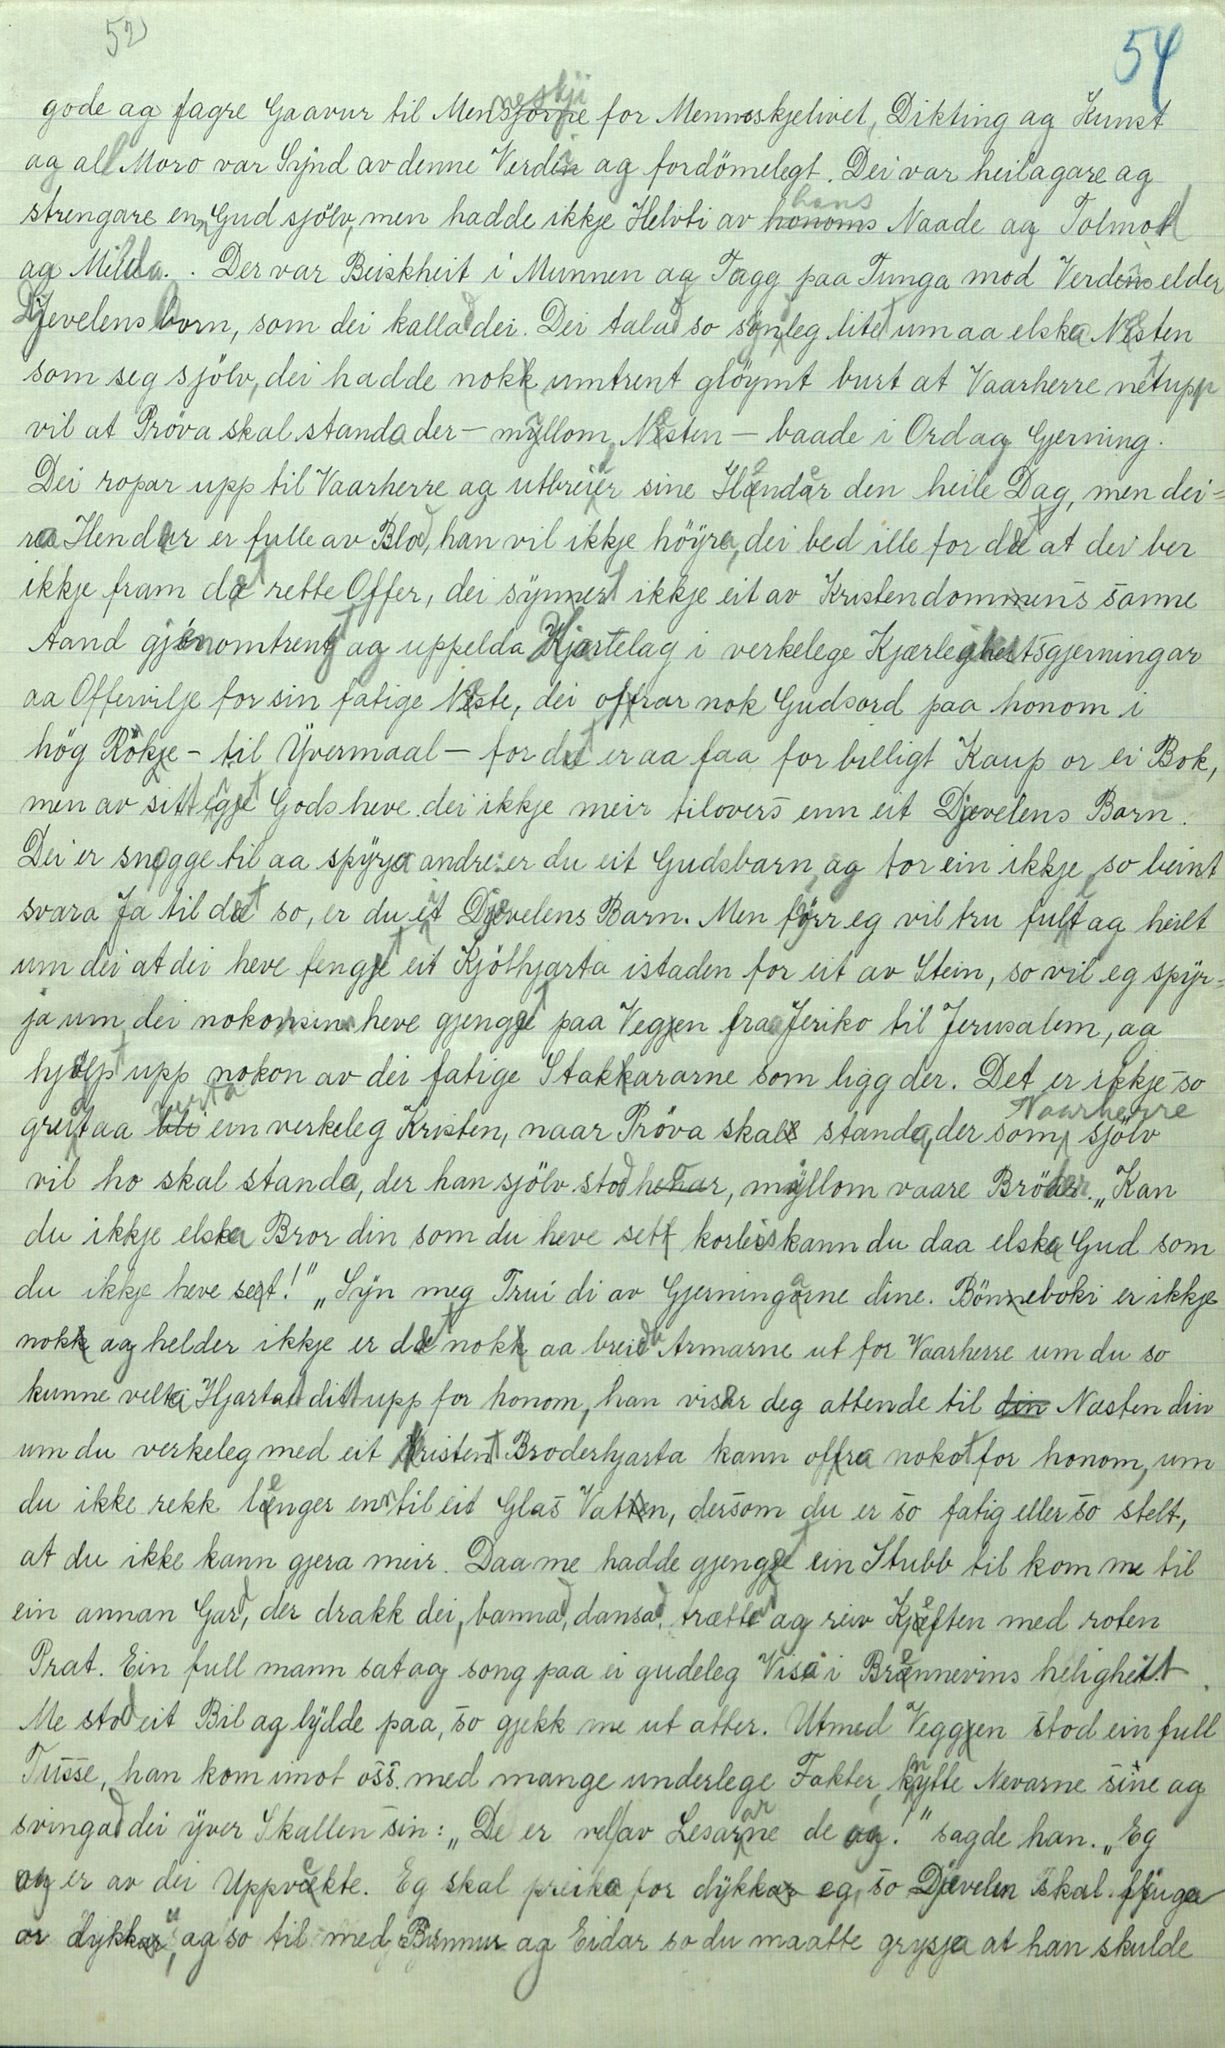 52)
54
gode ag fagre Gaavur til Menneskji for Menneskjelivet, Dikting ag Kunst
ag all Moro var Synd av denne Verdi ag fordömelegt. Dei var heilagare ag
strengare en Gud sjölv, men hadde ikkje Helvti av hans Naade ag Tolmod
ag Milda. Der var Beiskheit i Munnen ag Tagg paa Tunga mod Verdens elder
Djevelens born, som dei kallad dei. Dei talad so synleg litet um aa elska Nesten
som seg sjölv, dei hadde nok umtrent glöymt burt at Vaarherre netupp
vil at Pröva skal standa der - myllom Nesten - baade i Ord ag Gjerning.
Dei ropar upp til Vaarherre ag utbreier sine Hender den heile Dag, men dei=
ra Hendar er fulle av Blod, han vil ikkje höyra, dei bed ille for det at dei ber
ikkje fram det rette Offer, dei synnest ikkje eit av Kristendomens sanne
Aand gjenomtrengt ag uppelda Hjartelag i verkelege Kjærlegheitsgjerningar
aa Offervilje for sin fatige Neste, dei ofrar nok Gudsord paa honom i
hög Rökje - til Yvermaal - for det er aa faa for billigt Kaup or ei Bok,
men av sitt eiget Gods heve dei ikkje meir tilovers enn eit Djevelens Barn.
Dei er snogge til aa spyrja andre: er du eit Gudsbarn, ag tor ein ikkje so beint
svara Ja til det so, er du eit Djevelens Barn. Men fyrr eg vil tru fult ag heilt
um dei at dei heve fenget eit Kjöthjarta istaden for eit av Stein, so vil eg spyr=
ja um dei nokonsin heve gjenget paa Vegen fraa Jeriko til Jerusalem, ag
hjelpt upp nokon av dei fatige Stakkararne som ligg der. Det er ikkje so
greidt aa verta ein verkeleg Kristen, naar Pröva skal standa, der som Vaarherre sjölv
vil ho skal standa, der han sjölv stod, myllom vaare Bröder. „Kan
du ikkje elska Bror din som du heve sett korleis kann du daa elska Gud som
du ikkje heve sett!" „Syn meg Trui di av Gjerningarne dine. Böneboki er ikkje
nok ag helder ikkje er det nok aa breida Armarne ut for Vaarherre um du so
kunne velta Hjartat ditt upp for honom, han viser deg attende til Næsten din
um du verkeleg med eit kristent Broderhjarta kann ofra nokot for honom, um
du ikke rekk lenger en til eit Glas Vatn, dersom du er so fatig eller so stelt,
at du ikke kann gjera meir. Daa me hadde gjenget ein Stubb til kom me til
ein annan Gard, der drakk dei, bannad, dansad, trættad ag reiv Kjeften med roten
Prat. Ein full mann sat ag song paa ei gudeleg Visa i Brennevins helighett.
Me stod eit Bil ag lydde paa, so gjekk me ut atter. Utmed Veggen stod ein full
Tusse, han kom imot oss med mange underlege Fakter, knytte Nevarne sine ag
svingad dei yver Skallen sin: „De er vel av Lesarane de ag!" sagde han. „Eg
ag er av dei Uppvekte. Eg skal preika for dykk eg, so Djævelen skal fjuga
or dykk", ag so til med Bannur ag Eidar so du maatte grysja at han skulde